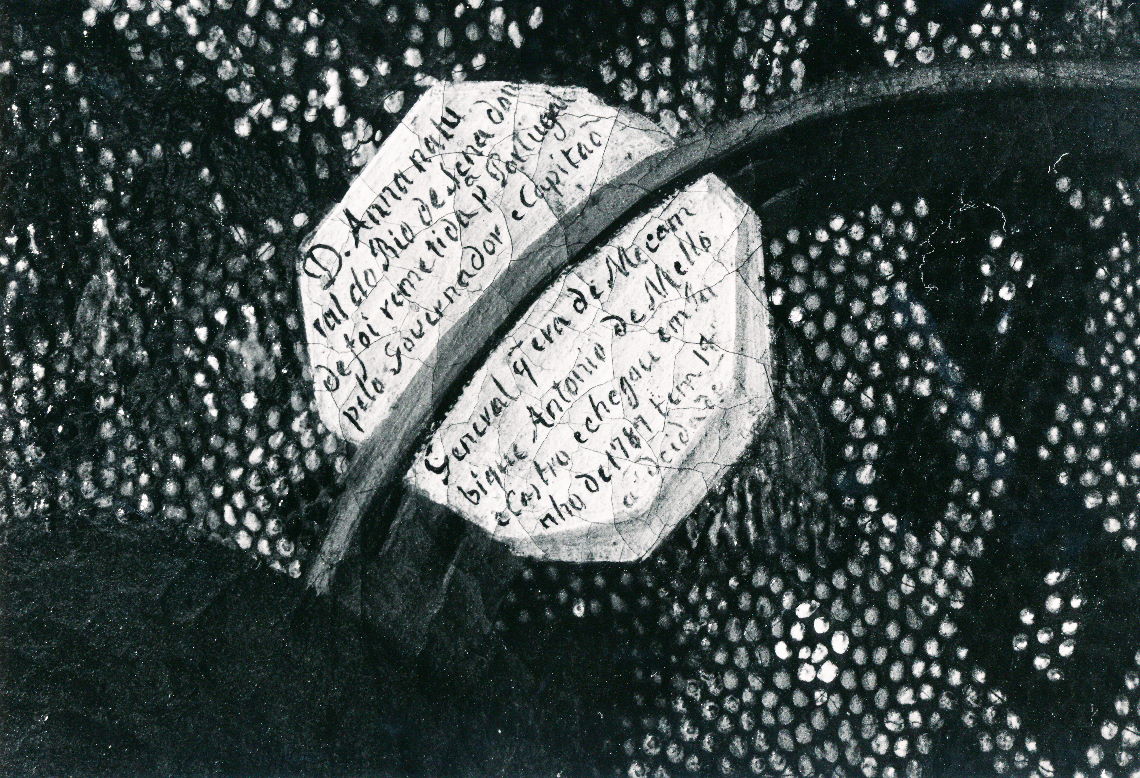 D. Anna natu
ral do Rio de Sena don
de foi remetida p Portugal
pelo Governador e Capitão
General q̃ era de Moçam
bique Antonio de Mello
e Castro e chegou em
nho de 1787 tem 17
a d id